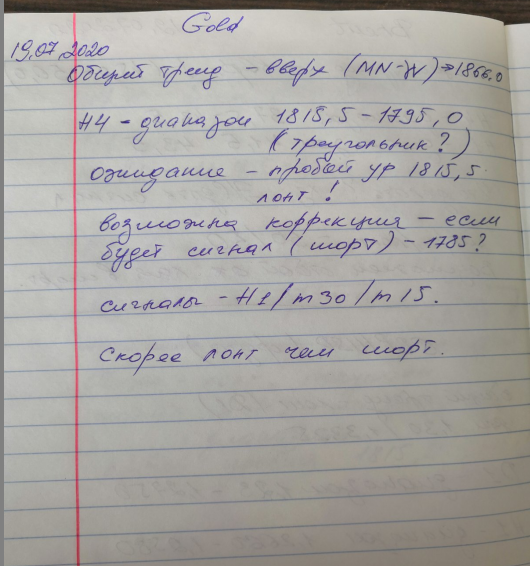 Gold
19,07,2020
Общий тренд - вверх (MN-W) → 1866,0
H4 - диапазон 1815,5 - 1795,0
(треугольник?)
ожидание - пробой ур 1815,5
лонг!
возможна коррекция - если
будет сигнал (шорт) - 1785?
сигналы - H1/m30/m15.
Скорее лонг чем шорт.